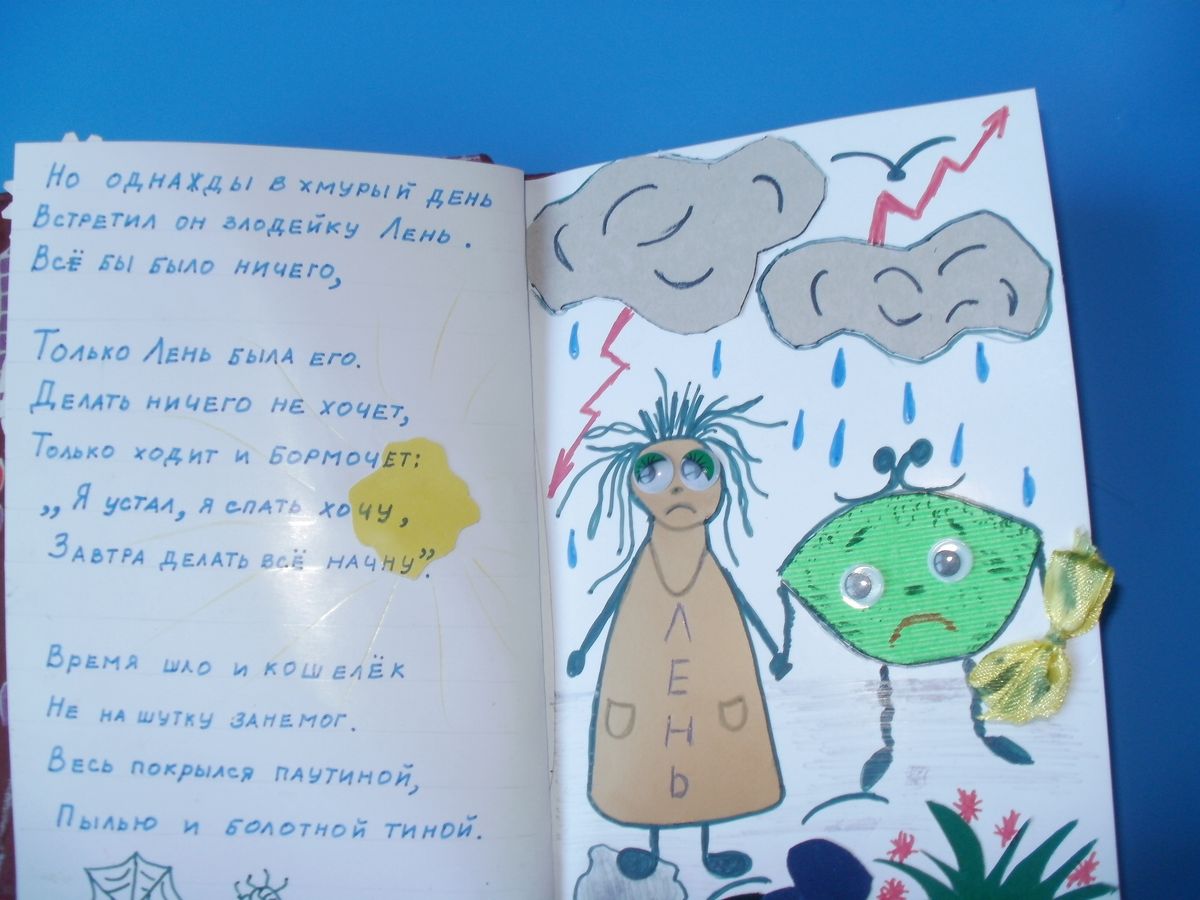 Но однажды в хмурый день
Встретил он злодейку Лень.
Всё бы было ничего,
Только Лень была его.
Делать ничего не хочет,
Только ходит и бормочет:
„Я устал, я спать хочу,
Завтра делать всё начну”.
Время шло и кошелёк
Не на шутку занемог.
Весь покрылся паутиной,
Пылью и болотной тиной.
ЛЕНЬ